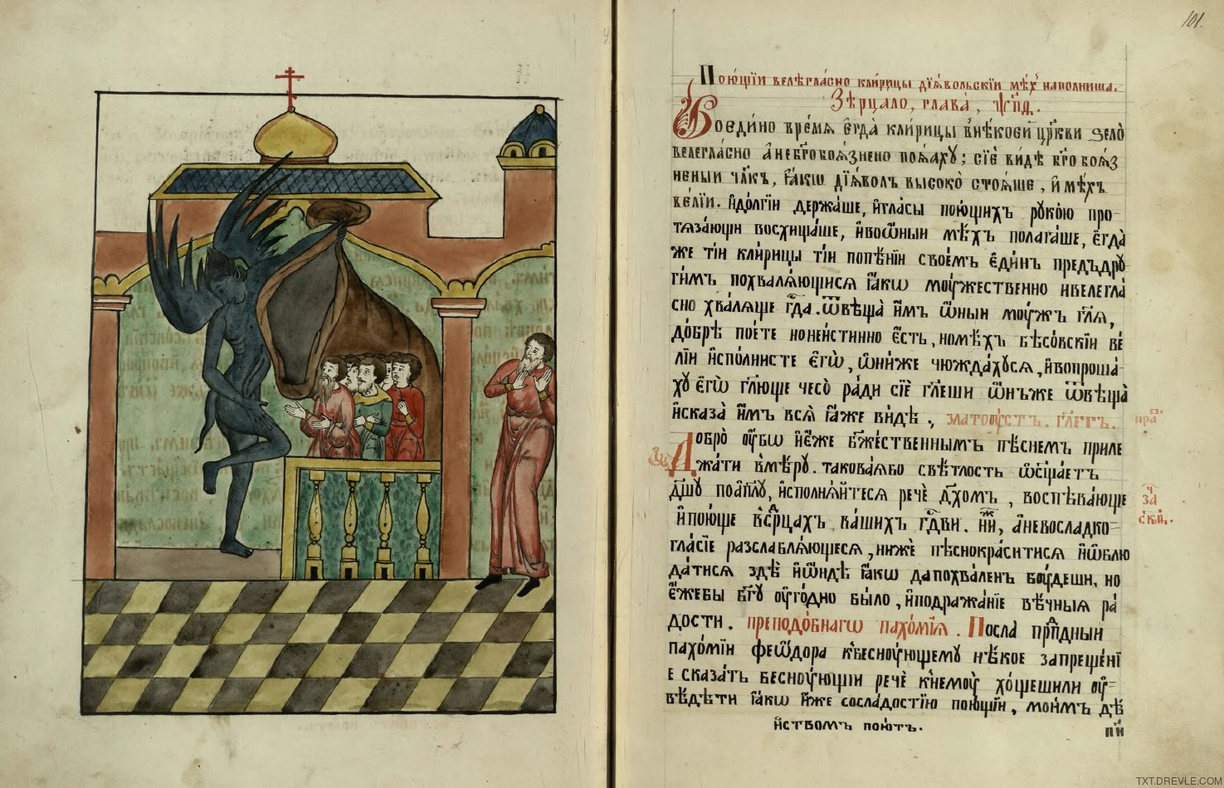 101.
Пою́щїи велегла́сно кли́рицы дїѧ́вольскїи мѣ́х наполни́ша.
Зѣ́рцало, глава̀, ѱпд.
Воеди́но вре́мѧ є҆гда̀ кли́рицы внѣ́коєй цр҃кви зело̀
велегла́сно а҆небг҃обоѧ́знено поѧ́хꙋ; сїѐ ви́дѣ бг҃обоѧз
неный чл҃къ, ꙗ҆́кѡ дїѧ́волъ высоко̀ стоѧ́ше, и҆ мѣ́хъ
ве́лїи. и҆до́лгїи держа́ше, и҆гла́сы пою́щихъ рꙋко́ю про
тѧза́ющи восхища́ше, и҆воѡ́ный мѣ́хъ полага́ше, є҆гда̀
же ті́и кли́рицы ті́и попѣ́нїи свое́мъ є҆ди́нъ предъдрꙋ
ги́мъ похвалѧ́ющисѧ ꙗ҆́кѡ мꙋ́жественно ивелегла́
сно хва́лѧще гд҃а. ѿвѣща̀ и҆́мъ ѡ҆́ный мꙋ́жъ гл҃ѧ,
до́брѣ пое́те ноне́истинно є҆́сть, номѣ́хъ бѣсо́вскїи ве́
лїи и҆спо́лнисте є҆гѡ̀, ѡ҆ни́же чюжда́хꙋсѧ, и҆вопроша́
хꙋ є҆гѡ̀ гл҃юще чесо̀ ра́ди сїѐ гл҃еши ѡ҆́нъже ѿвѣща̀
и҆сказа̀ и҆́мъ всѧ̀ ꙗ҆́же ви́дѣ. златоꙋ́стъ. гл҃етъ.
Добро̀ ᲂу҆́бѡ и҆є҆́же бж҃е́ственнымъ пѣ́снемъ приле
жа́ти вмѣ́рꙋ. такова́ѧбо свѣ́тлость ѡ҆сїѧ́етъ
дш҃ꙋ поап҃лꙋ, и҆сполнѧ́йтесѧ речѐ дх҃омъ, воспѣва́юще
и҆пою́ще всрⷣцахъ ва́шихъ гдⷭ҇ви. нн҃ѣ, а҆невосладко=
гла́сїе разслаблѧ́ющесѧ, нижѐ пѣснокраси́тисѧ и҆ѿвлю
да́тисѧ здѣ̀ и҆ѡ҆́ндѣ ꙗ҆́кѡ да похва́ленъ бꙋ́деши, но
є҆́жебы бг҃ꙋ ᲂу҆го́дно бы́ло, и҆подража́нїе вѣ́чныѧ ра́
дости. преподо́бнагѡ пахо́мїѧ. Посла̀ прпⷣбный
пахо́мїи феѡ́дора кбеснꙋ́ющемꙋ нѣ́кое запреще́нї
е сказа́ть беснꙋ́ющїи речѐ кнемꙋ̀ хо́щешили ᲂу҆=
вѣ́дѣти ꙗ҆́кѡ и҆̀же сосла́достїю пою́щїи, мои́мъ дѣ́
йствомъ пою́тъ.
за
скⷧ҇и.
TXT.DREVLE.COM